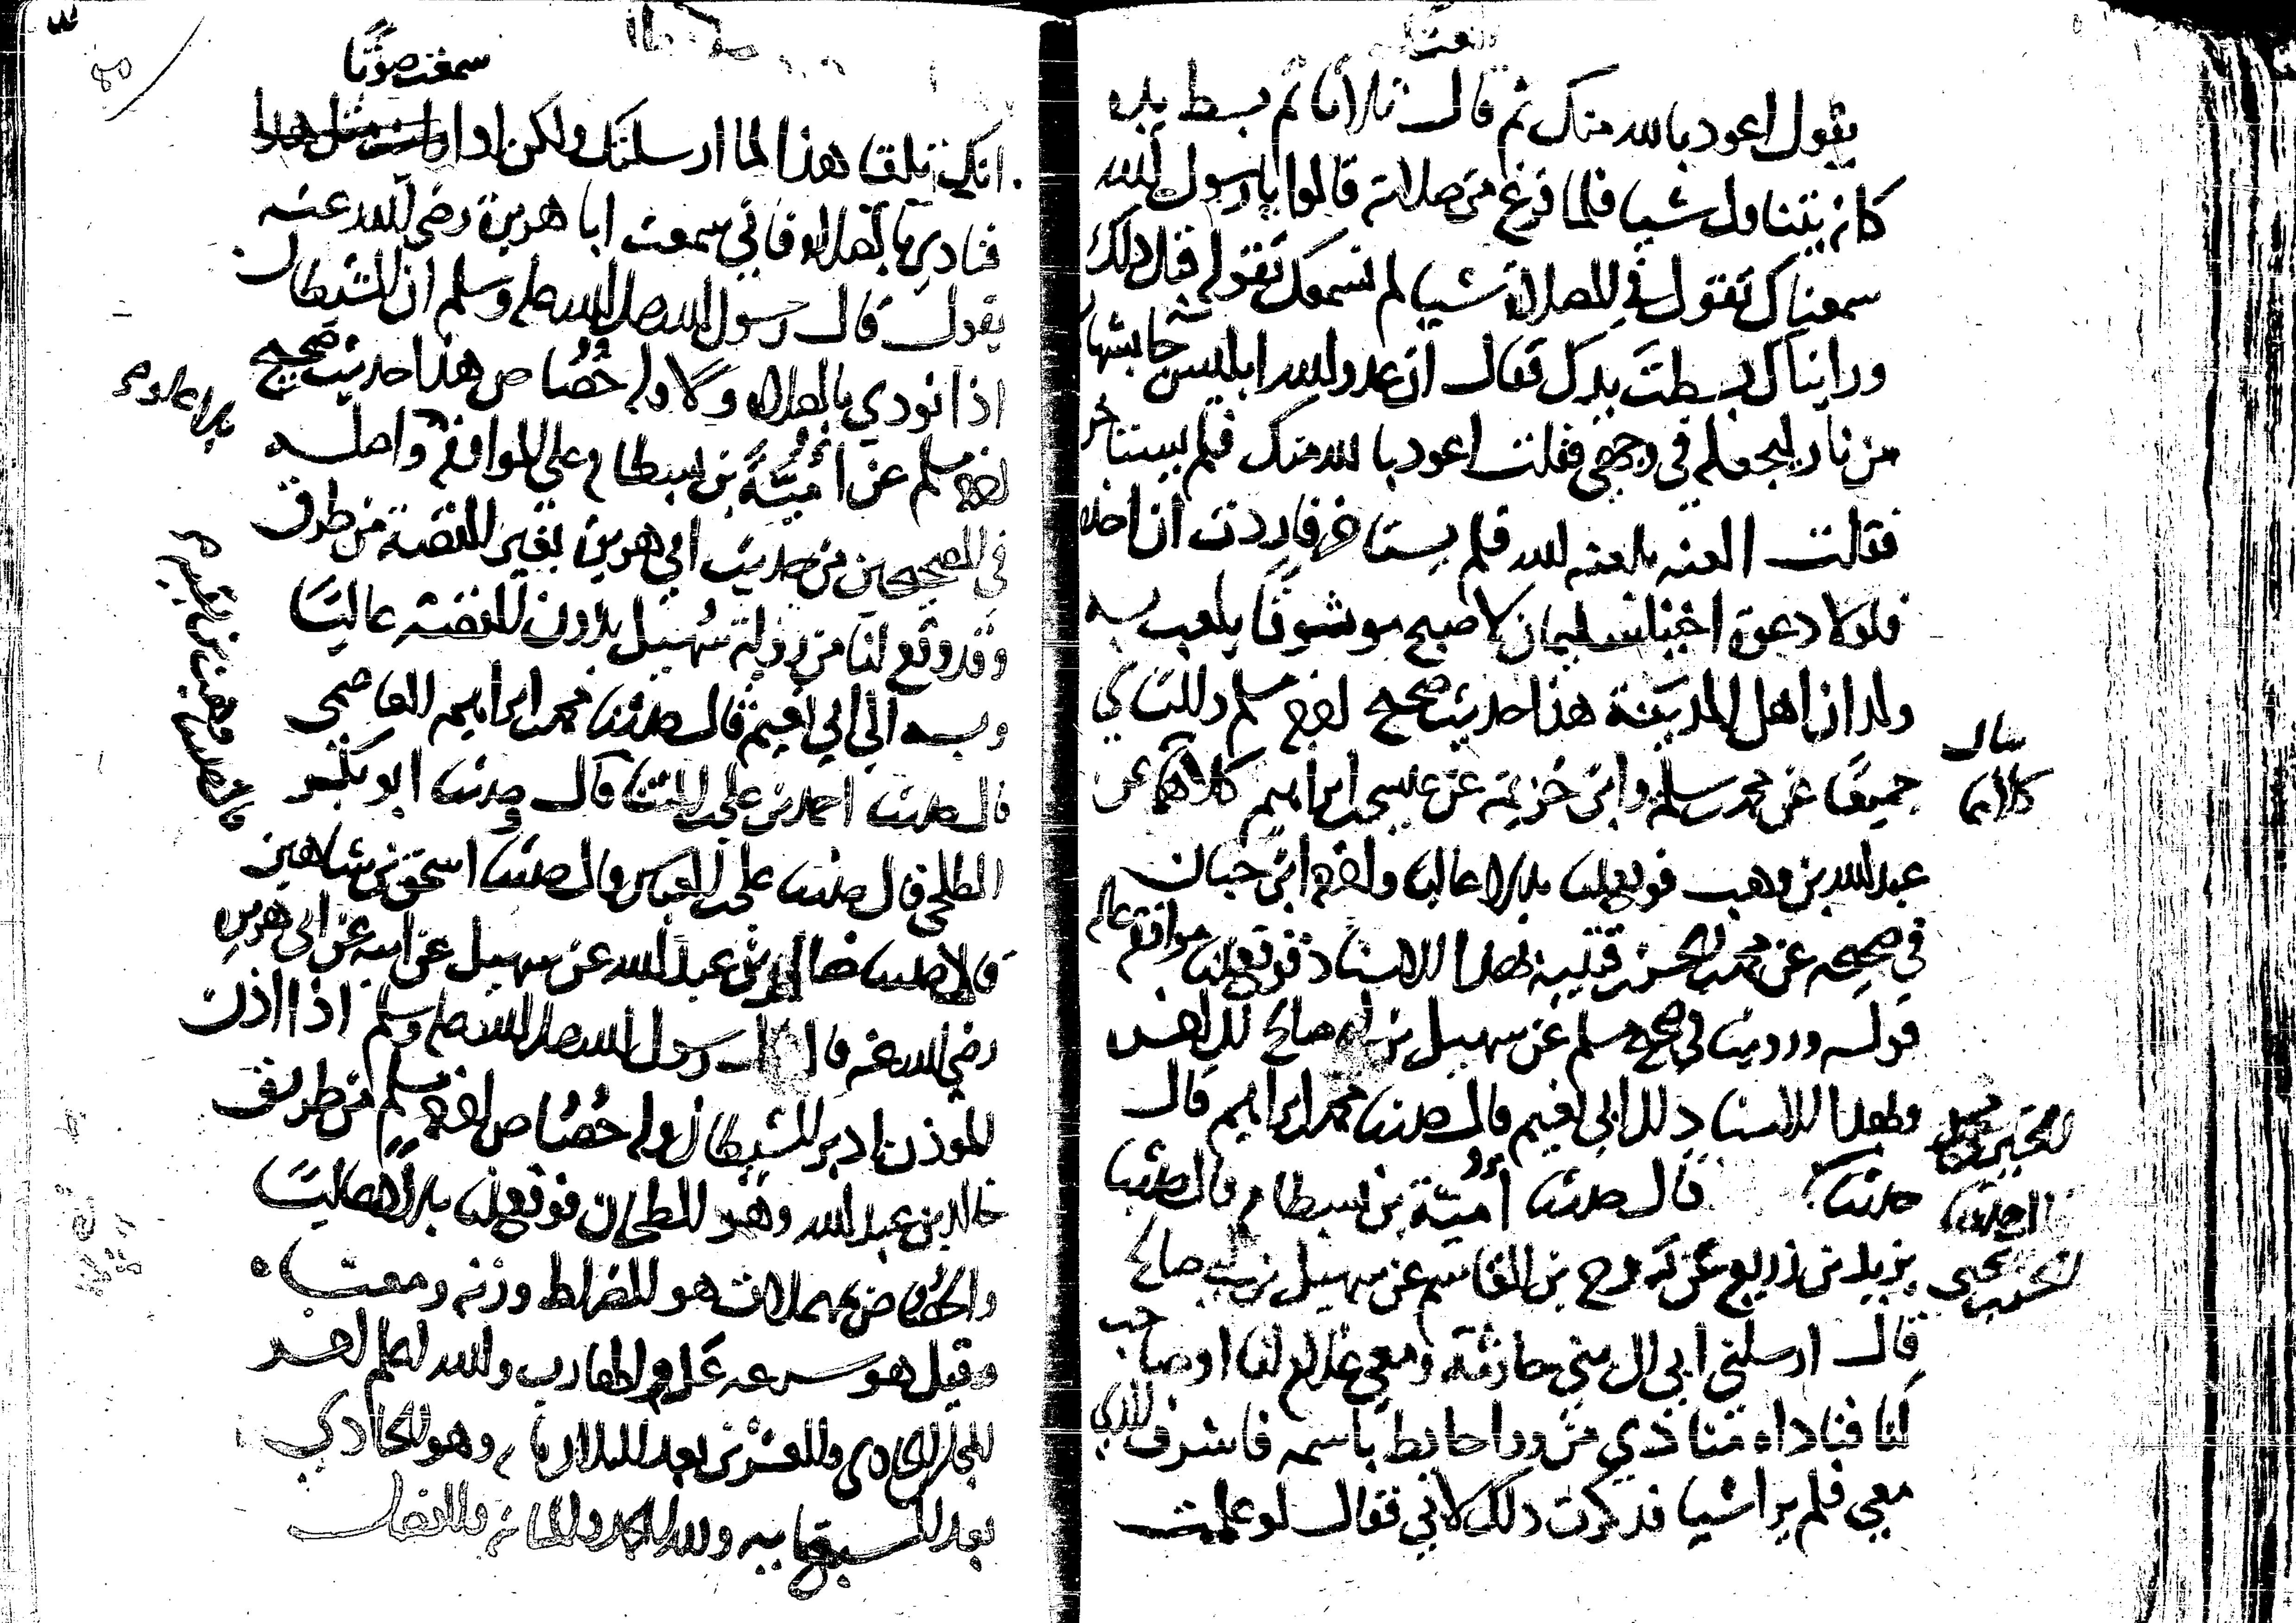 يقول اعوذ بالله منك ثم قال ثلاثا ثم بسط يده
كانه يتناول شيا فلما فرغ من صلاته قالوا يا رسول الله
سمعناك تقول في الصلاة شيا لم نسمعك تقوله قبل ذلك
ورايناك بسطت يدك فقال ان عدو الله ابليس جا بشهاب
من نار ليجعله في وجهي فقلت اعوذ بالله منك فلم يستاخر
فقلت العنه بلعنه الله فلم يستاخر فاردت ان اخذه
فلولا دعوة اخينا سليمان لاصبح موثوقا يلعب به
ولدان اهل المدينة هذا حديث صحيح اخرجه مسلم والنسائي
جميعا عن محمد بن سلمة وابن خزيمة عن عيسى بن ابراهيم كلاهما عن
عبد الله بن وهب فوقع لنا بدلا عاليا واخرجه ابن حبان
في صحيحه عن محمد بن الحسن بن قتيبة بهذا الاسناد فوقع لنا موافقة عالية
قوله وروينا في صحيح مسلم عن سهيل بن ابي صالح الى اخره
وبهذا الاسناد الى ابي نعيم قال حدثنا محمد بن ابراهيم قال
حدثنا قال حدثنا امية بن بسطام قال حدثنا
يزيد بن زريع عن روح بن القاسم عن سهيل بن ابي صالح
قال ارسلني ابي الى بني حارثة ومعي غلام لنا او صاحب
لنا فناداه مناذي من ورا حايط باسمه فاشرف الذي
معي فلم ير شيا فذكرت ذلك لابي فقال لو علمت
سمعت صوتا
انك تلقا هذا لما ارسلتك ولكن اذا
فنادي بالصلاة فاني سمعت ابا هريرة رضي الله عنه
يقول قال رسول الله صلى الله عليه وسلم ان الشيطان
اذا نودي بالصلاة ولا وله حُصَاص هذا حديث صحيح
اخرجه مسلم عن امية بن بسطام على الموافقة واصله
في الصحيحين من حديث ابي هريرة بغير القصة من طرق
وقد وقع لنا من رواية سهيل بدون القصة عاليا
وبه الى ابي نعيم قال حدثنا محمد بن ابراهيم القاضي
قال حدثنا احمد بن علي بن المثنى قال وحدثنا ابو بكر
الطلحي قال حدثنا علي بن العباس قال حدثنا اسحق بن شاهين
قالا حدثنا خالد بن عبد الله عن سهيل عن ابيه عن ابي هريرة
رضي الله عنه قال قال رسول الله صلى الله عليه وسلم اذا اذن
الموذن ادبر الشيطان وله حُصَاص اخرجه مسلم من طريق
خالد بن عبد الله وهو الطحان فوقع لنا بدلا عاليا
والحصاص بمهملات هو الضراط وزنه ومعناه
وقيل هو سرعه عدو الهارب والله اعلم اخر
المجلس الحادي والعشرين بعد الثلاثماية وهو الحادي
بعد السبعماية